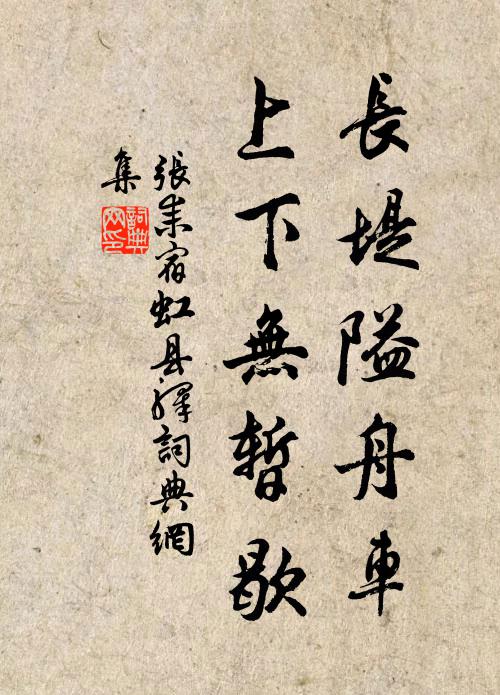 長堤隘舟車
上下無暫歇
張耒宿虹县驛詞典網
集
詞典網印